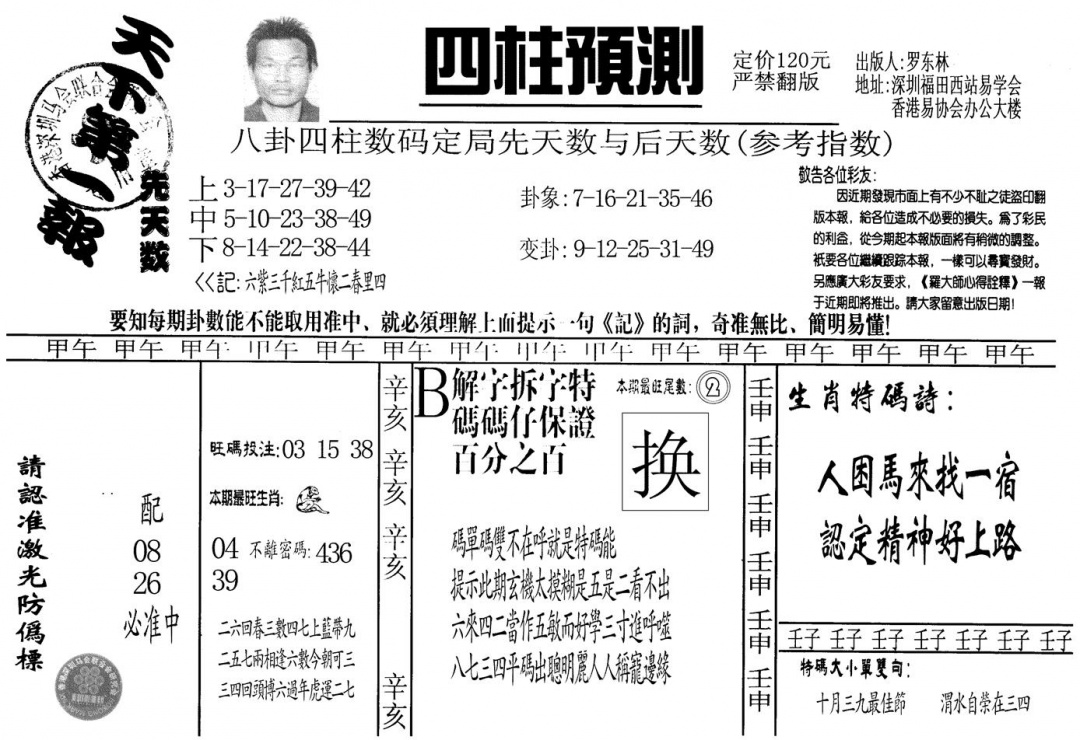 天下第一報
四柱預測
定价120元
严禁翻版
出版人:罗东林
地址:深圳福田西站易学会
香港易协会办公大楼
八卦四柱数码定局先天数与后天数(参考指数)
先天数
上 3-17-27-39-42
中 5-10-23-38-49
下 8-14-22-38-44
<<記:六紫三千紅五牛懷二春里四
卦象:7-16-21-35-46
变卦:9-12-25-31-49
敬告各位彩友:
因近期發現市面上有不少不耻之徒盜印翻
版本報,給各位造成不必要的損失。爲了彩民
的利益,從今期起本報版面將有稍微的調整。
衹要各位繼續跟踪本報,一樣可以尋寶發財。
另應廣大彩友要求,《羅大師心得詮釋》一報
于近期即將推出。請大家留意出版日期!
要知每期卦數能不能取用准中、就必須理解上面提示一句《記》的詞,奇准無比、簡明易懂!
甲午 甲午 甲午 甲午 甲午 甲午 甲午 甲午 甲午 甲午 甲午 甲午 甲午 甲午 甲午
請認准激光防僞標
配
08
26
必准中
旺碼投注:03 15 38
本期最旺生肖:
04 不離密碼:436
39
二六回春三數四七上藍帶九
二五七兩相逢六數今朝可三
三四回頭博六過年虎運二七
辛亥
辛亥
辛亥
辛亥
B解字拆字特
碼碼仔保證
百分之百
本期最旺尾數:2
换
碼單碼雙不在呼就是特碼能
提示此期玄機太摸糊是五是二看不出
六來四二當作五敏而好學三寸進呼噬
八七三四平碼出聰明麗人人稱寵邊緣
壬申
壬申
壬申
壬申
壬申
壬申
生肖特碼詩:
人困馬來找一宿
認定精神好上路
壬子 壬子 壬子 壬子 壬子 壬子 壬子
特碼大小單雙句:
十月三九最佳節 渭水自荣在三四